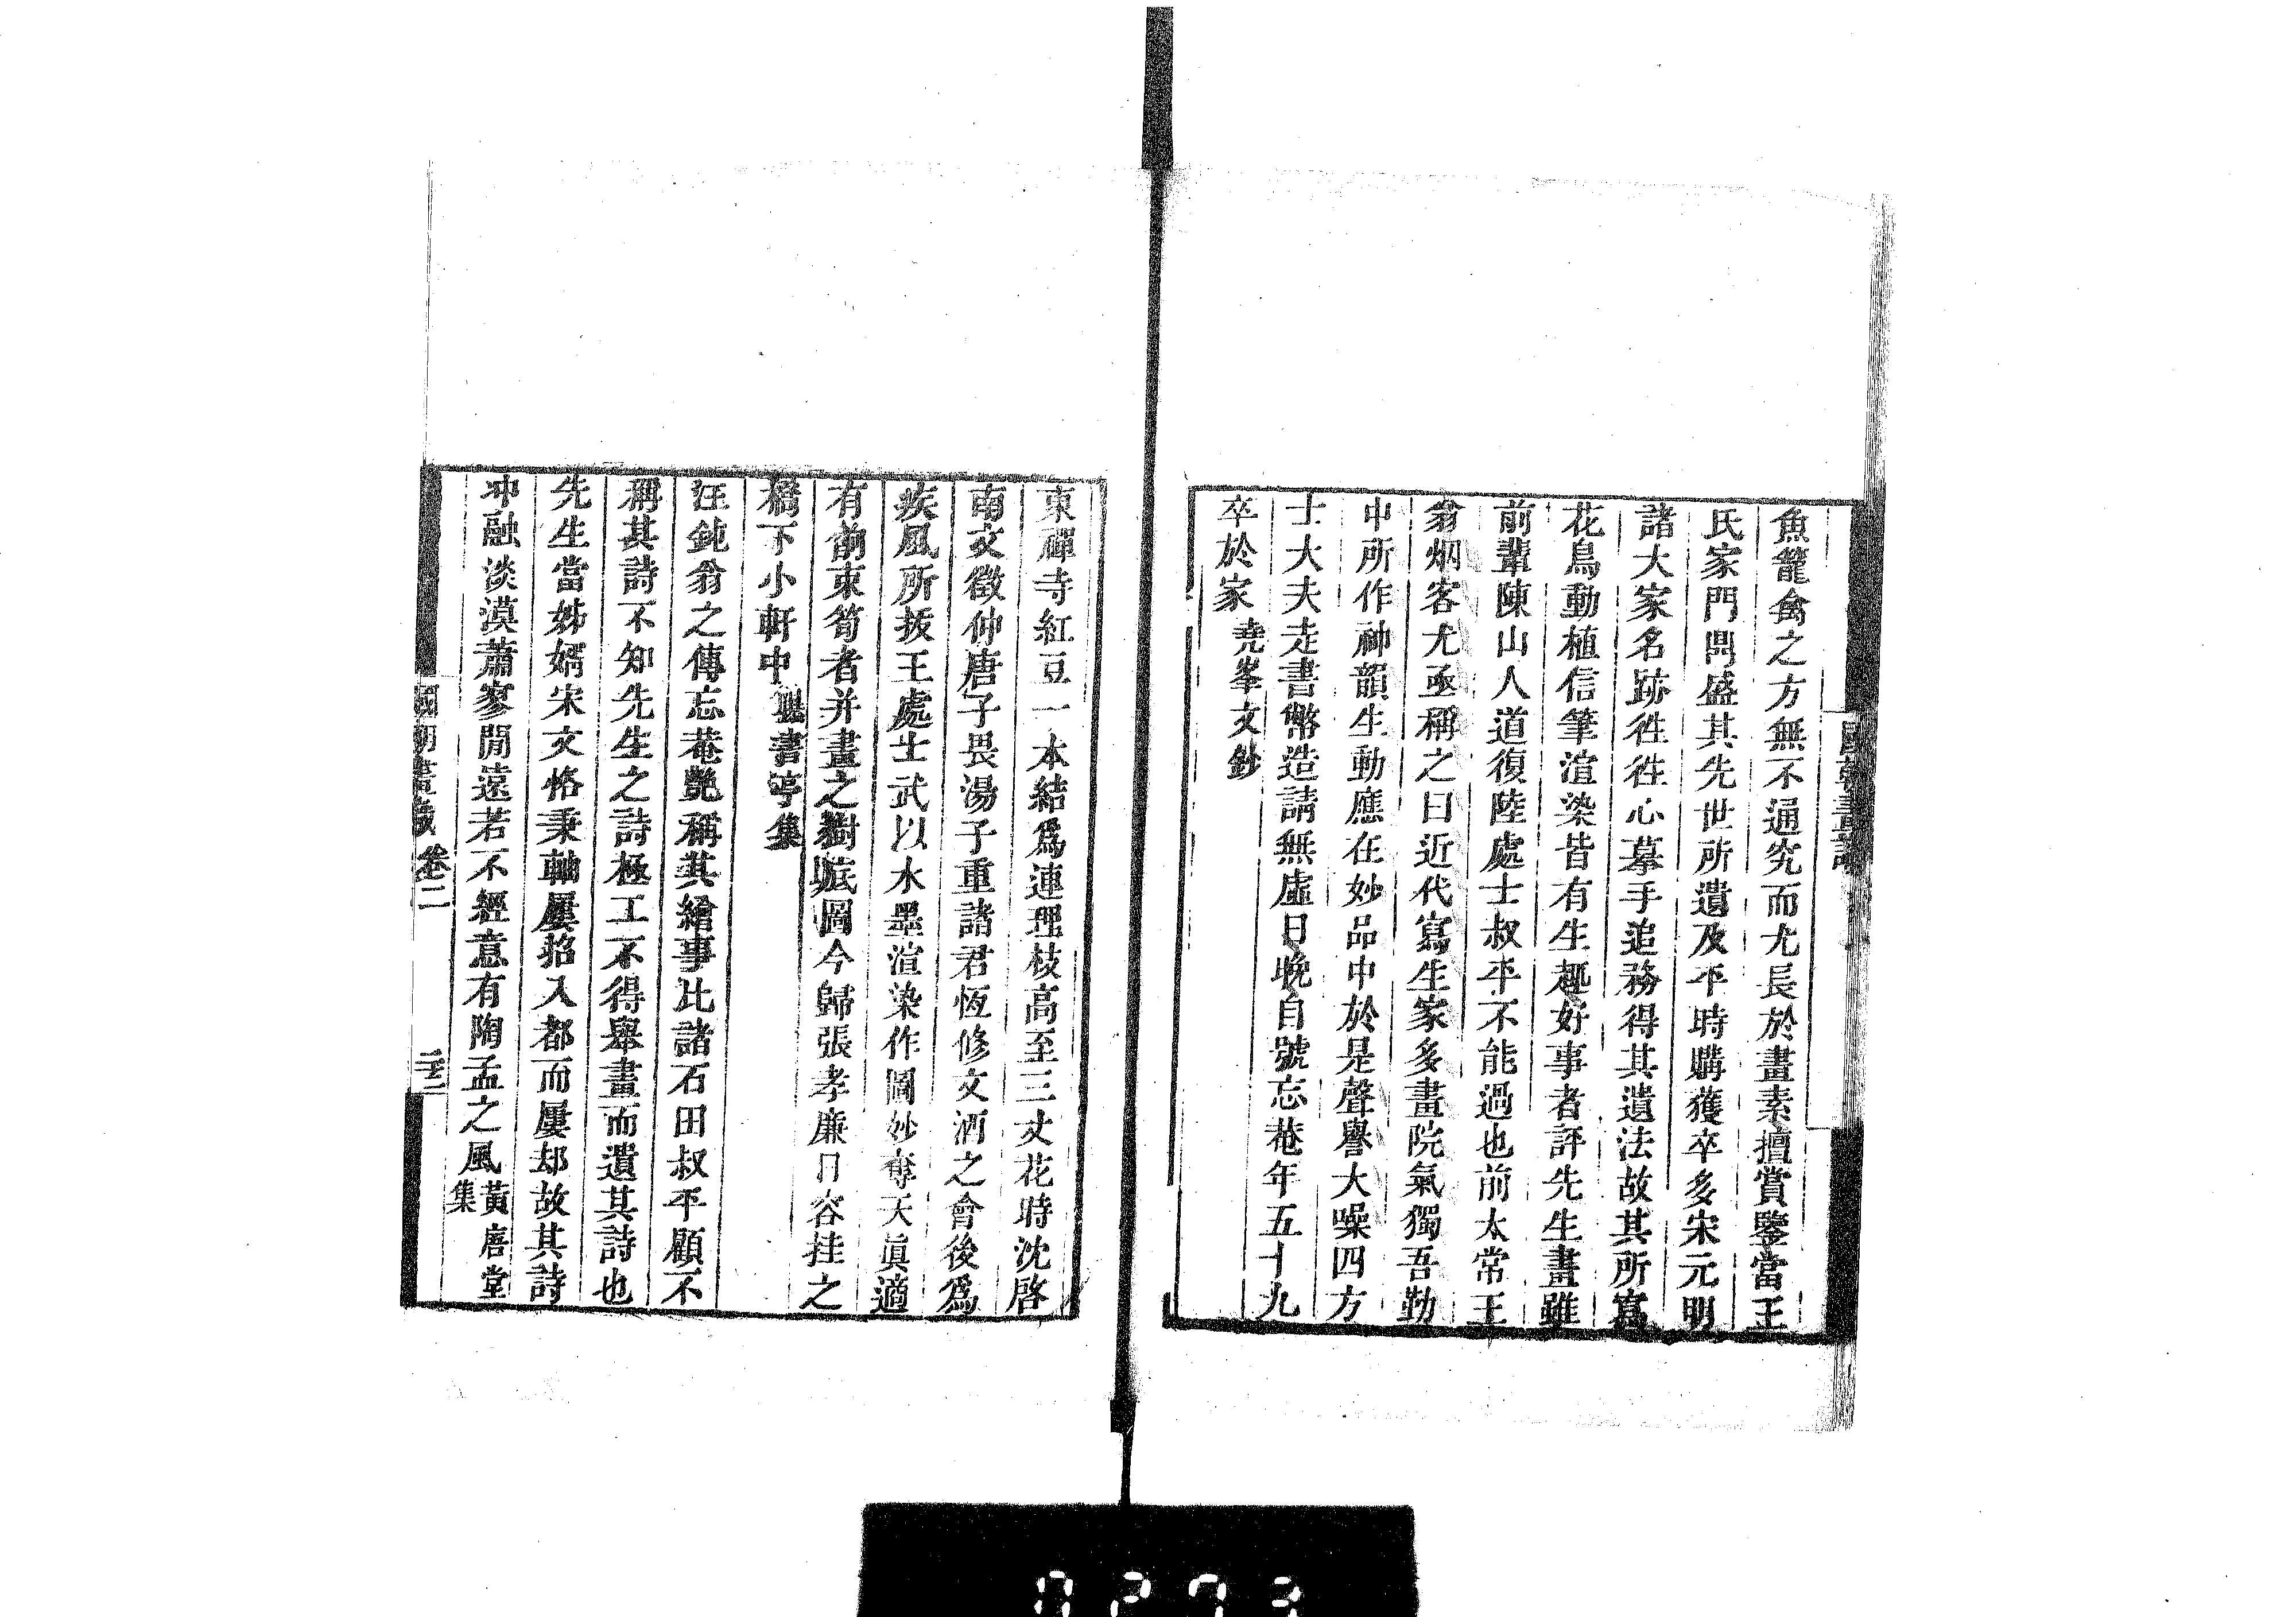 魚籠禽之方無不通究而尤長於畫素擅賞鑒當王
氏家門鼎盛其先世所遺及平時購獲卒多宋元明
諸大家名跡徃徃心摹手追務得其遺法故其所寫
花鳥動植信筆渲染皆有生趣好事者評先生畫雖
前輩陳山人道復陸處士叔平不能過也前太常王
翁烟客尤亟稱之曰近代寫生家多畫院氣獨吾勤
中所作神韻生動應在妙品中於是聲譽大噪四方
士大夫走書幣造請無虛日晚自號忘菴年五十九
卒於家 堯峯文鈔
東禪寺紅豆一本結爲連理枝高至三丈花時沈啓
南文徵仲唐子畏湯子重諸君恆修文酒之會後爲
疾風所拔王處士武以水墨渲染作圖妙奪天眞適
有餉東筍者并畫之樹底圖今歸張孝廉日容挂之
橋下小軒中 曝書亭集
汪鈍翁之傳忘菴艷稱其繪事比諸石田叔平顧不
稱其詩不知先生之詩極工不得舉畫而遺其詩也
先生當姊婿宋文恪秉軸屢招入都而屢却故其詩
冲融淡漠蕭寥閒遠若不經意有陶孟之風 黃唐堂
集
卷二
0273